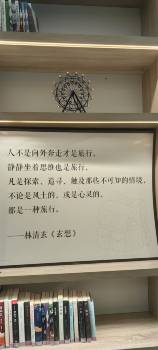 人不是向外奔走才是旅行，
静静坐着思维也是旅行，
凡是探索、追寻、触及那些不可知的情境，
不论是风土的，或是心灵的，
都是一种旅行。
——林清玄《玄想》